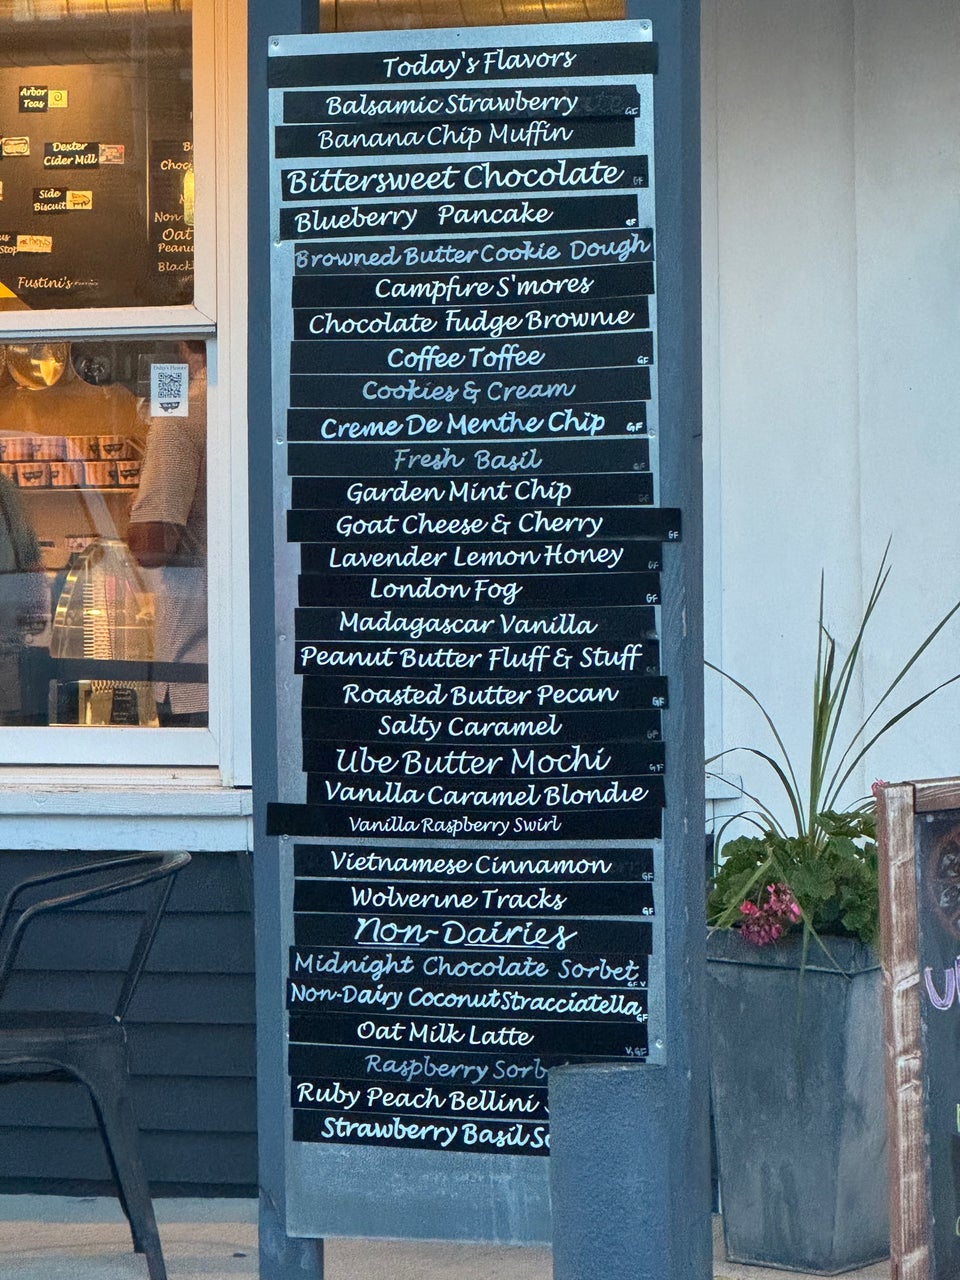 Arbor
Teas
Dexter
Cider Mill
Side
Biscuit
Fustini's
Choc
Non
Oat
Peanu
Black
Today's Flavors
Balsamic Strawberry GF
Banana Chip Muffin
Bittersweet Chocolate GF
Blueberry Pancake GF
Browned Butter Cookie Dough
Campfire S'mores
Chocolate Fudge Brownie
Coffee Toffee GF
Cookies & Cream
Creme De Menthe Chip GF
Fresh Basil GF
Garden Mint Chip GF
Goat Cheese & Cherry GF
Lavender Lemon Honey GF
London Fog GF
Madagascar Vanilla
Peanut Butter Fluff & Stuff
Roasted Butter Pecan GF
Salty Caramel GF
Ube Butter Mochi GF
Vanilla Caramel Blondie
Vanilla Raspberry Swirl
Vietnamese Cinnamon GF
Wolverine Tracks GF
Non-Dairies
Midnight Chocolate Sorbet GF V
Non-Dairy Coconut Stracciatella GF
Oat Milk Latte V GF
Raspberry Sorb
Ruby Peach Bellini
Strawberry Basil So